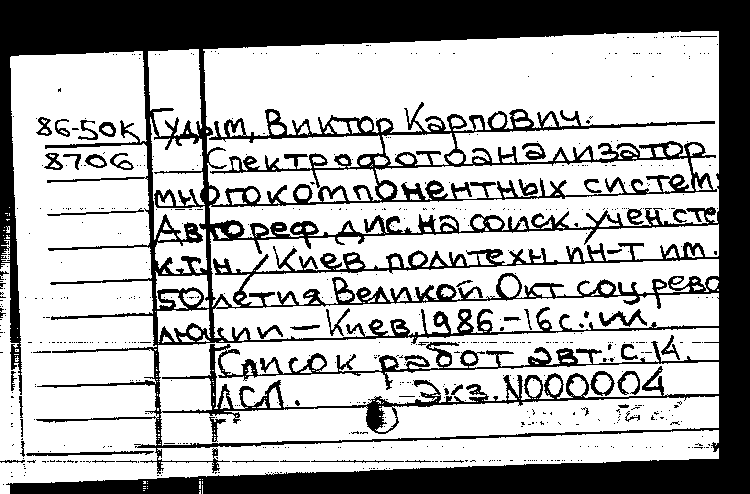 86-50к Гудым, Виктор Карпович.
8706 Спектрофотоанализатор
многокомпонентных систем:
Автореф. дис. на соиск. учен. сте
к.т.н. / Киев. политехн. ин-т им.
50-летия Великой Окт. соц. рево
люции. — Киев, 1986. – 16 с.: ил.
Список работ авт.: с. 14.
ДСП. Экз. N000004